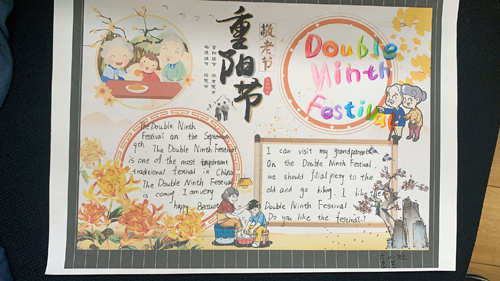 重阳节
敬老节
Double
Ninth
Festival
The Double Ninth
Festival on the September
9th. The Double Ninth Festival
is one of the most important
traditional festival in China
The Double Ninth Festival
is coming. I am very
happy. Because
I can visit my grandparents
On the Double Ninth Festival,
we should filial piety to the
old and go hiking. I like
Double Ninth Festival
Do you like the festival?